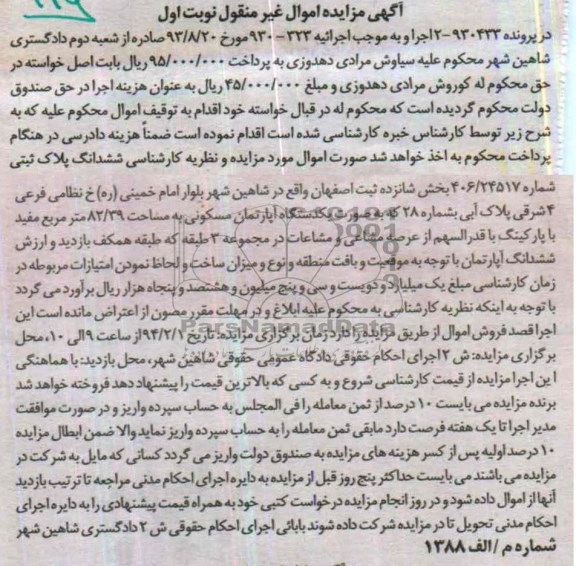 آگهی مزایده اموال غیر منقول نوبت اول
در پرونده ۹۳۰۴۳۳-۲ اجرا و به موجب اجرائیه ۳۲۳-۹۳۰ مورخ ۹۳/۸/۲۰ صادره از شعبه دوم دادگستری
شاهین شهر محکوم علیه سیاوش مرادی دهدوزی به پرداخت ۹۵/۰۰۰/۰۰۰ ریال بابت اصل خواسته در
حق محکوم له کوروش مرادی دهدوزی و مبلغ ۴۵/۰۰۰/۰۰۰ ریال به عنوان هزینه اجرا در حق صندوق
دولت محکوم گردیده است که محکوم له در قبال خواسته خود اقدام به توقیف اموال محکوم علیه که به
شرح زیر توسط کارشناس خبره کارشناسی شده است اقدام نموده است ضمناً هزینه دادرسی در هنگام
پرداخت محکوم به اخذ خواهد شد صورت اموال مورد مزایده و نظریه کارشناسی ششدانگ پلاک ثبتی
شماره ۴۰۶/۲۴۵۱۷ بخش شانزده ثبت اصفهان واقع در شاهین شهر بلوار امام خمینی (ره) خ نظامی فرعی
۴ شرقی پلاک آبی بشماره ۲۸ که به صورت یکدستگاه آپارتمان مسکونی به مساحت ۸۲/۳۹ متر مربع مفید
با پارکینگ با قدرالسهم از عرصه مشاعی و مشاعات در مجموعه ۳ طبقه که طبقه همکف بازدید و ارزش
ششدانگ آپارتمان با توجه به موقعیت و بافت منطقه و نوع و میزان ساخت و لحاظ نمودن امتیازات مربوطه در
زمان کارشناسی مبلغ یک میلیارد و دویست و سی و پنج میلیون و هشتصد و پنجاه هزار ریال برآورد می گردد
با توجه به اینکه نظریه کارشناسی به محکوم علیه ابلاغ و در مهلت مقرر مصون از اعتراض مانده است این
اجرا قصد فروش اموال از طریق مزایده را دارد زمان برگزاری مزایده: تاریخ ۹۴/۲/۱ از ساعت ۹ الی ۱۰، محل
برگزاری مزایده: ش ۲ اجرای احکام حقوقی دادگاه عمومی حقوقی شاهین شهر، محل بازدید: با هماهنگی
این اجرا مزایده از قیمت کارشناسی شروع و به کسی که بالاترین قیمت را پیشنهاد دهد فروخته خواهد شد
برنده مزایده می بایست ۱۰ درصد از ثمن معامله را فی المجلس به حساب سپرده واریز و در صورت موافقت
مدیر اجرا تا یک هفته فرصت دارد مابقی ثمن معامله را به حساب سپرده واریز نماید والا ضمن ابطال مزایده
۱۰ درصد اولیه پس از کسر هزینه های مزایده به صندوق دولت واریز می گردد کسانی که مایل به شرکت در
مزایده می باشند می بایست حداکثر پنج روز قبل از مزایده به دایره اجرای احکام مدنی مراجعه تا ترتیب بازدید
آنها از اموال داده شود و در روز انجام مزایده درخواست کتبی خود به همراه قیمت پیشنهادی را به دایره اجرای
احکام مدنی تحویل تا در مزایده شرکت داده شوند بابائی اجرای احکام حقوقی ش ۲ دادگستری شاهین شهر
شماره م/الف ۱۳۸۸
ParsNamadData